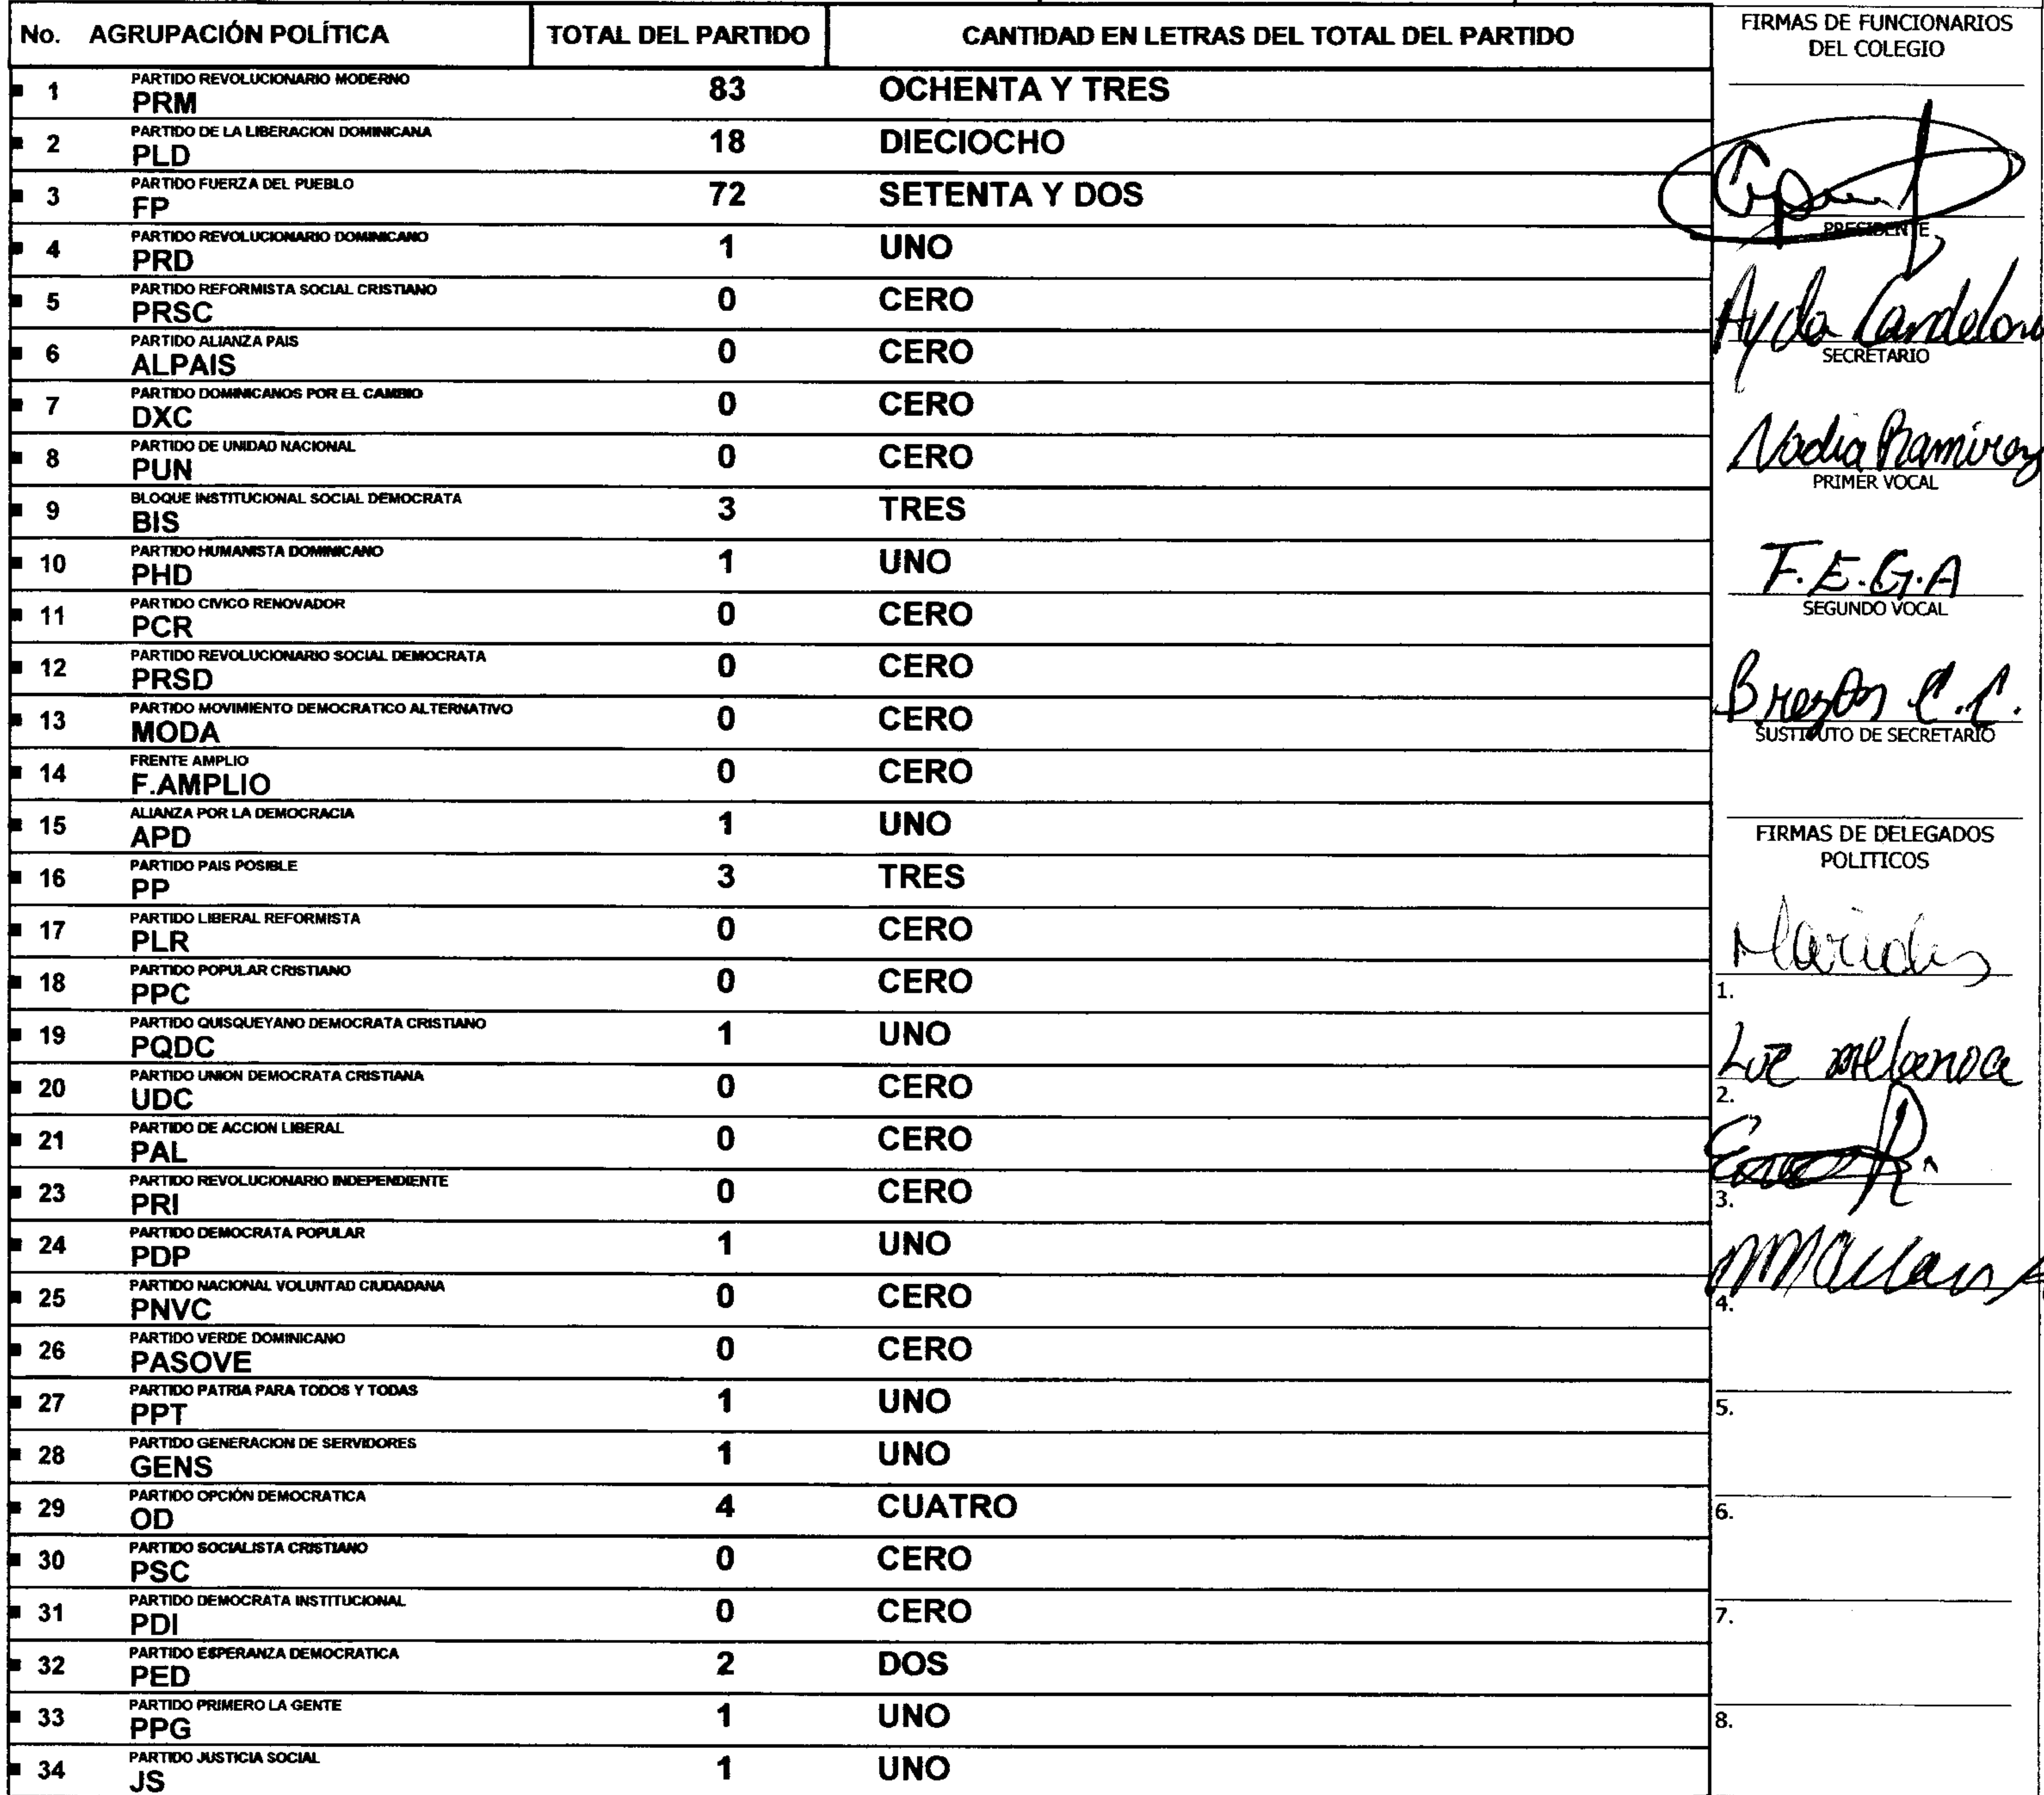 No. AGRUPACIÓN POLÍTICA TOTAL DEL PARTIDO CANTIDAD EN LETRAS DEL TOTAL DEL PARTIDO
PARTIDO REVOLUCIONARIO MODERNO
1 PRM 83 OCHENTA Y TRES
PARTIDO DE LA LIBERACION DOMINICANA
2 PLD 18 DIECIOCHO
PARTIDO FUERZA DEL PUEBLO
3 FP 72 SETENTA Y DOS
PARTIDO REVOLUCIONARIO DOMINICANO
4 PRD 1 UNO
PARTIDO REFORMISTA SOCIAL CRISTIANO
5 PRSC 0 CERO
PARTIDO ALIANZA PAIS
6 ALPAIS 0 CERO
PARTIDO DOMINICANOS POR EL CAMBIO
7 DXC 0 CERO
PARTIDO DE UNIDAD NACIONAL
8 PUN 0 CERO
BLOQUE INSTITUCIONAL SOCIAL DEMOCRATA
9 BIS 3 TRES
PARTIDO HUMANISTA DOMINICANO
10 PHD 1 UNO
PARTIDO CIVICO RENOVADOR
11 PCR 0 CERO
PARTIDO REVOLUCIONARIO SOCIAL DEMOCRATA
12 PRSD 0 CERO
PARTIDO MOVIMIENTO DEMOCRATICO ALTERNATIVO
13 MODA 0 CERO
FRENTE AMPLIO
14 F.AMPLIO 0 CERO
ALIANZA POR LA DEMOCRACIA
15 APD 1 UNO
PARTIDO PAIS POSIBLE
16 PP 3 TRES
PARTIDO LIBERAL REFORMISTA
17 PLR 0 CERO
PARTIDO POPULAR CRISTIANO
18 PPC 0 CERO
PARTIDO QUISQUEYANO DEMOCRATA CRISTIANO
19 PQDC 1 UNO
PARTIDO UNION DEMOCRATA CRISTIANA
20 UDC 0 CERO
PARTIDO DE ACCION LIBERAL
21 PAL 0 CERO
PARTIDO REVOLUCIONARIO INDEPENDIENTE
23 PRI 0 CERO
PARTIDO DEMOCRATA POPULAR
24 PDP 1 UNO
PARTIDO NACIONAL VOLUNTAD CIUDADANA
25 PNVC 0 CERO
PARTIDO VERDE DOMINICANO
26 PASOVE 0 CERO
PARTIDO PATRIA PARA TODOS Y TODAS
27 PPT 1 UNO
PARTIDO GENERACION DE SERVIDORES
28 GENS 1 UNO
PARTIDO OPCIÓN DEMOCRATICA
29 OD 4 CUATRO
PARTIDO SOCIALISTA CRISTIANO
30 PSC 0 CERO
PARTIDO DEMOCRATA INSTITUCIONAL
31 PDI 0 CERO
PARTIDO ESPERANZA DEMOCRATICA
32 PED 2 DOS
PARTIDO PRIMERO LA GENTE
33 PPG 1 UNO
PARTIDO JUSTICIA SOCIAL
34 JS 1 UNO
FIRMAS DE FUNCIONARIOS
DEL COLEGIO
PRESIDENTE
Ayda
SECRETARIO
Nadia Ramirez
PRIMER VOCAL
F.E.G.A
SEGUNDO VOCAL
C.C.
SUSTITUTO DE SECRETARIO
FIRMAS DE DELEGADOS
POLITICOS
1.
2.
3.
4.
5.
6.
7.
8.